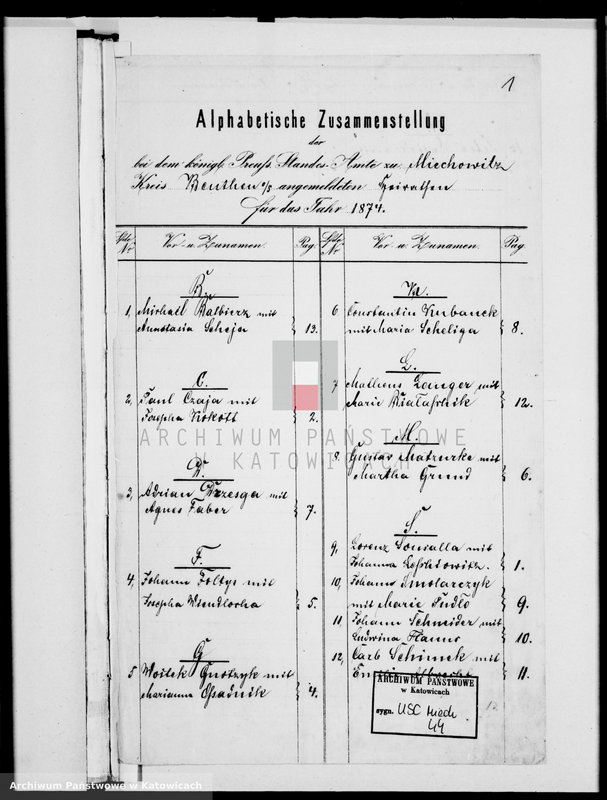 1
Alphabetische Zusammenstellung
der
bei dem königl. Preuß. Standes-Amte zu Miechowitz
Kreis Beuthen o/s angemeldeten Heirathen
für das Jahr 1874.
Vor- u. Zunamen. Pag.
B.
1, Michael Balbierz mit
Anastasia Scheja 13.
C.
2, Paul Czaja mit
Josepha Kokott 2.
3, Adrian mit
Agnes Faber 7.
F.
4, Johann Foltys mit
Josepha 5.
G
5 Woitek mit
Marianna 4.
Vor- u. Zunamen. Pag.
K.
6 Constantin mit Maria Scheliga 8.
L.
7 Matheus Langer mit
Marie 12.
M.
8. Gustav Matzurke mit
Martha Grund 6.
S.
9, Lorenz Sowalla mit
Johanna 1.
10, Johann Smolarczyk
mit Marie Pudlo 9.
11, Johann Schneider mit
Ludwina 10.
12, Carl Schimek mit
11.
ARCHIWUM PAŃSTWOWE
w Katowicach
sygn. USC Miech
44
12
ARCHIWUM PAŃSTWOWE
W KATOWICACH
Archiwum Państwowe w Katowicach